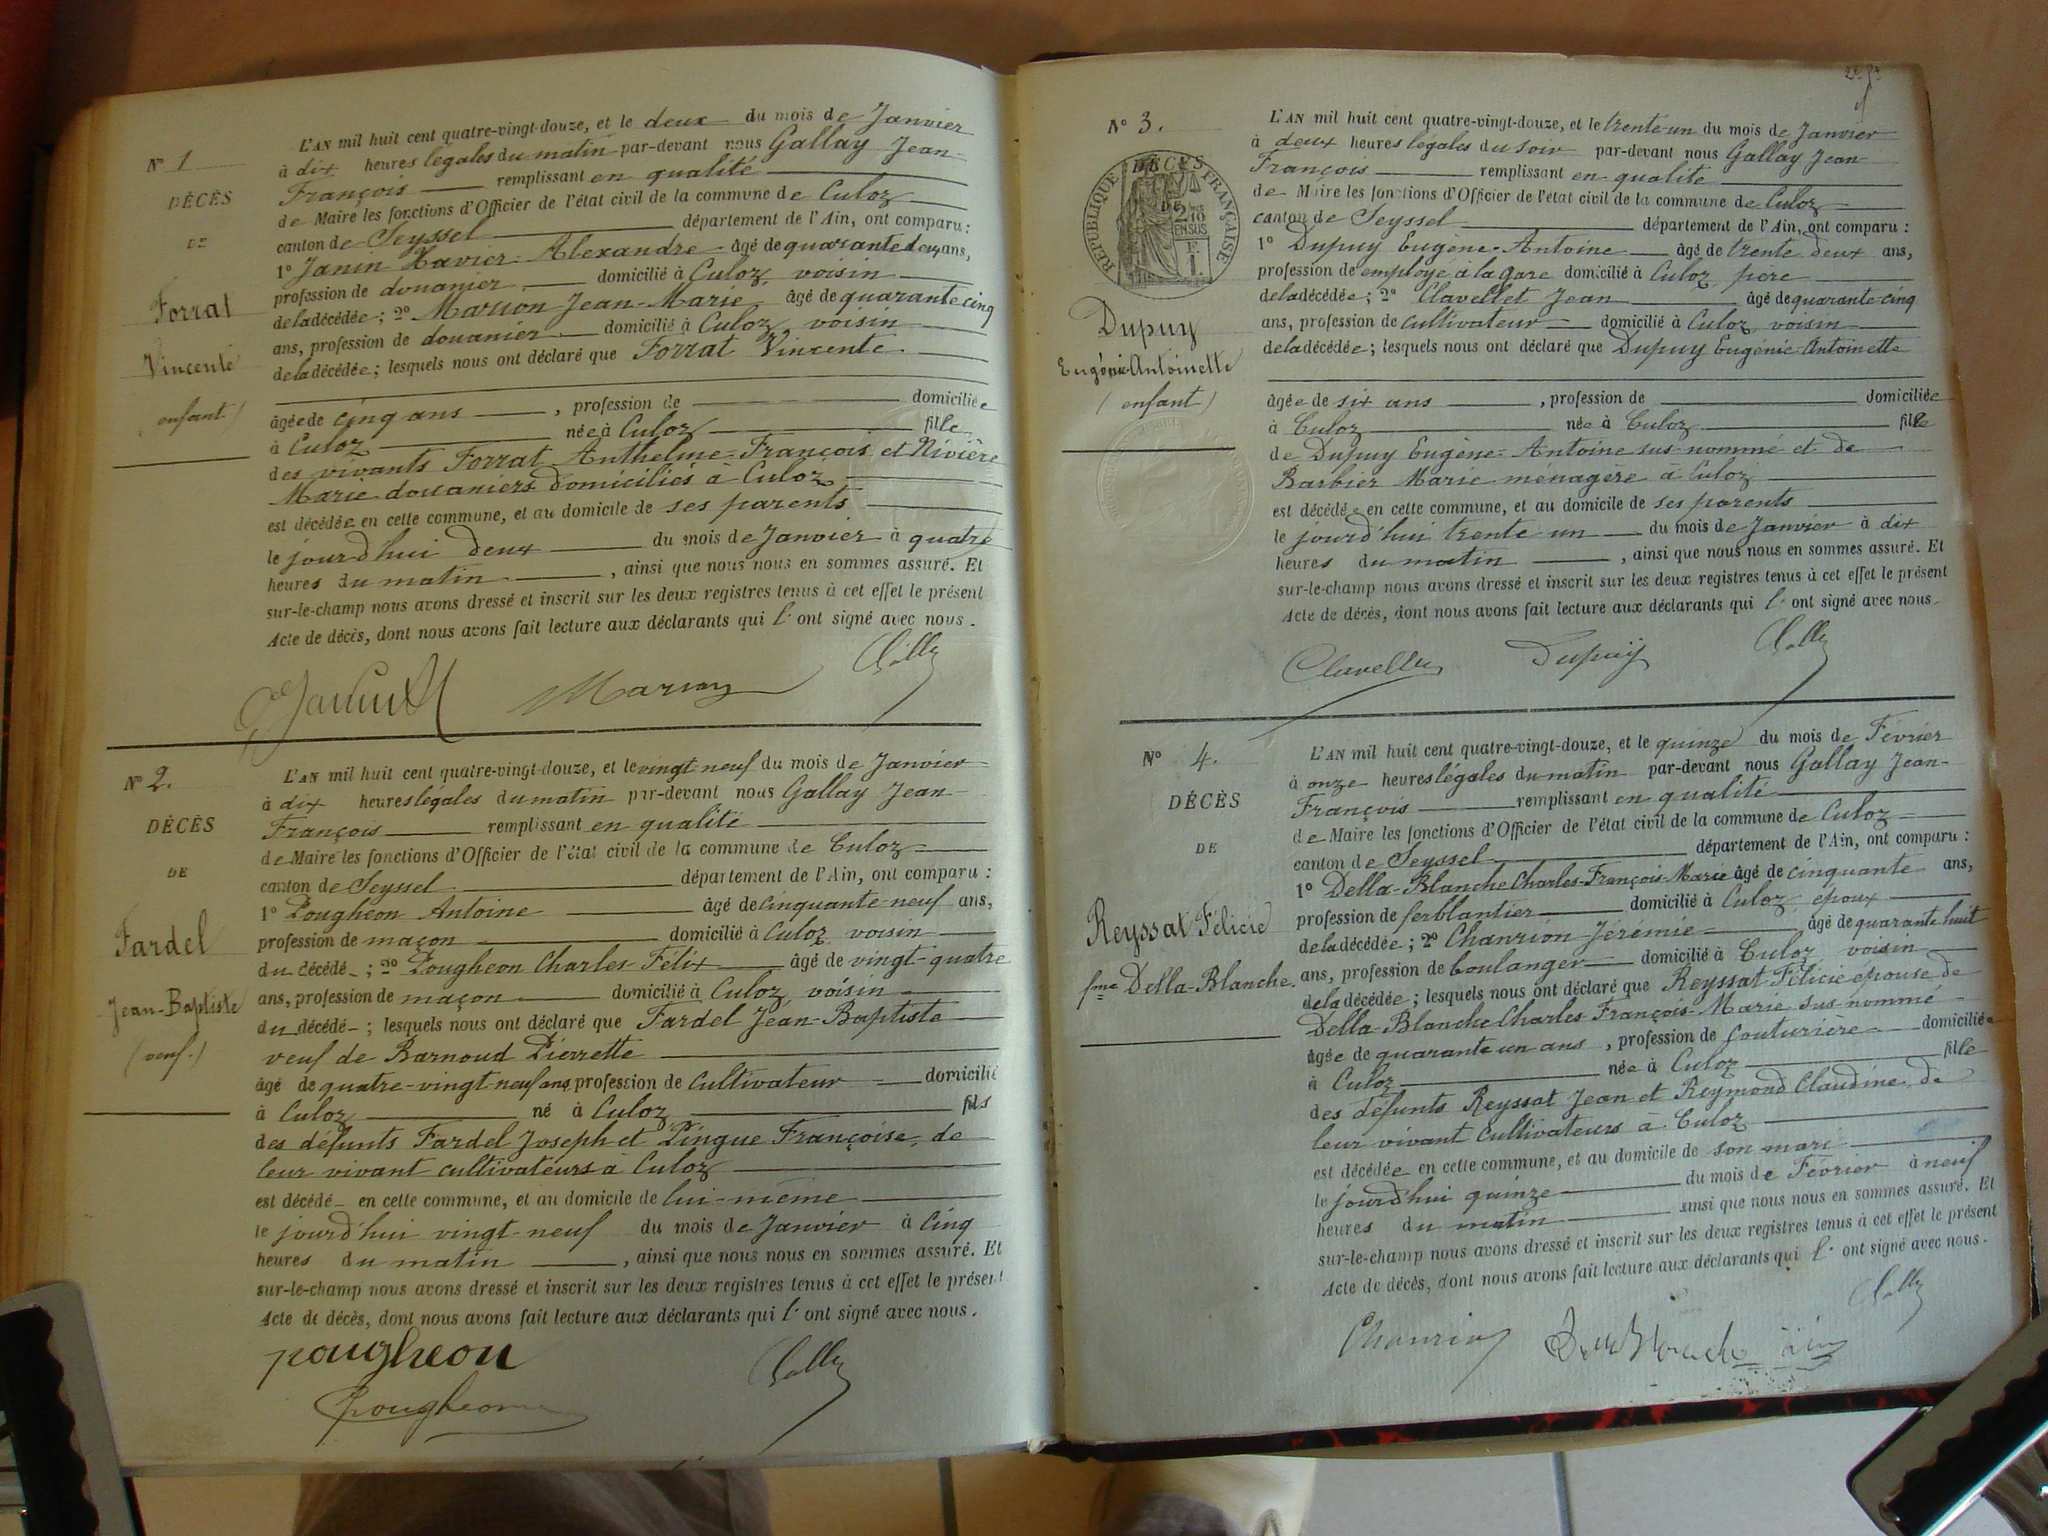 N° 1
DÉCÈS
DE
Forrat
Vincente
(enfant)
L'AN mil huit cent quatre-vingt-douze, et le deux du mois de Janvier
à dix heures légales du matin par-devant nous Gallay Jean-
François remplissant en qualité
de Maire les fonctions d'Officier de l'état civil de la commune de Culoz
canton de Seyssel département de l'Ain, ont comparu :
1° Janin Xavier-Alexandre âgé de quarante deux ans,
profession de douanier domicilié à Culoz, voisin
de la décédée ; 2° Marion Jean-Marie, âgé de quarante cinq
ans, profession de douanier domicilié à Culoz, voisin
de la décédée ; lesquels nous ont déclaré que Forrat Vincente
âgée de cinq ans , profession de domiciliée
à Culoz née à Culoz fille
des vivants Forrat Anthelme-François et Rivière
Marie douaniers domiciliés à Culoz
est décédée en cette commune, et au domicile de ses parents
le jourd'hui deux du mois de Janvier à quatre
heures du matin , ainsi que nous nous en sommes assuré. Et
sur-le-champ nous avons dressé et inscrit sur les deux registres tenus à cet effet le présent
Acte de décès, dont nous avons fait lecture aux déclarants qui l'ont signé avec nous.
Marion Gally
N° 2.
DÉCÈS
DE
Fardel
Jean-Baptiste
(veuf.)
L'AN mil huit cent quatre-vingt-douze, et le vingt neuf du mois de Janvier
à dix heures légales du matin par-devant nous Gallay Jean-
François remplissant en qualité
de Maire les fonctions d'Officier de l'état civil de la commune de Culoz
canton de Seyssel département de l'Ain, ont comparu :
1° Pougheon Antoine âgé de cinquante-neuf ans,
profession de maçon domicilié à Culoz, voisin
du décédé ; 2° Pougheon Charles-Félix âgé de vingt-quatre
ans, profession de maçon domicilié à Culoz, voisin
du décédé ; lesquels nous ont déclaré que Fardel Jean-Baptiste
veuf de Barnoud Pierrette
âgé de quatre-vingt-neuf ans, profession de Cultivateur domicilié
à Culoz né à Culoz fils
des défunts Fardel Joseph et Pingue Françoise, de
leur vivant cultivateurs à Culoz
est décédé en cette commune, et au domicile de lui-même
le jourd'hui vingt-neuf du mois de Janvier à Cinq
heures du matin , ainsi que nous nous en sommes assuré. Et
sur-le-champ nous avons dressé et inscrit sur les deux registres tenus à cet effet le présent
Acte de décès, dont nous avons fait lecture aux déclarants qui l'ont signé avec nous.
pougheon Gally
pougheon
N° 3.
RÉPUBLIQUE FRANÇAISE
DÉCÈS
DE
Dupuy
Eugénie-Antoinette
(enfant)
L'AN mil huit cent quatre-vingt-douze, et le trente un du mois de Janvier
à deux heures légales du soir par-devant nous Gallay Jean
François remplissant en qualité
de Maire les fonctions d'Officier de l'état civil de la commune de Culoz
canton de Seyssel département de l'Ain, ont comparu :
1° Dupuy Eugène-Antoine âgé de trente deux ans,
profession de employé à la gare domicilié à Culoz, père
de la décédée ; 2° Clavellet Jean âgé de quarante cinq
ans, profession de cultivateur domicilié à Culoz, voisin
de la décédée ; lesquels nous ont déclaré que Dupuy Eugénie-Antoinette
âgée de six ans , profession de domiciliée
à Culoz née à Culoz fille
de Dupuy Eugène-Antoine sus nommé et de
Barbier Marie ménagère à Culoz
est décédée en cette commune, et au domicile de ses parents
le jourd'hui trente un du mois de Janvier à dix
heures du matin , ainsi que nous nous en sommes assuré. Et
sur-le-champ nous avons dressé et inscrit sur les deux registres tenus à cet effet le présent
Acte de décès, dont nous avons fait lecture aux déclarants qui l'ont signé avec nous.
Dupuÿ Gally
N° 4.
DÉCÈS
DE
Reyssat Félicie
fme Della-Blanche.
L'AN mil huit cent quatre-vingt-douze, et le quinze du mois de Février
à onze heures légales du matin par-devant nous Gallay Jean-
François remplissant en qualité
de Maire les fonctions d'Officier de l'état civil de la commune de Culoz
canton de Seyssel département de l'Ain, ont comparu :
1° Della-Blanche Charles-François-Marie âgé de cinquante ans,
profession de ferblantier domicilié à Culoz, époux
de la décédée ; 2° Chanrion Jérémie âgé de quarante huit
ans, profession de boulanger domicilié à Culoz, voisin
de la décédée ; lesquels nous ont déclaré que Reyssat Félicie épouse de
Della-Blanche Charles-François-Marie sus-nommé
âgée de quarante un ans , profession de Couturière domiciliée
à Culoz née à Culoz fille
des défunts Reyssat Jean et Reymond Claudine de
leur vivant cultivateurs à Culoz
est décédée en cette commune, et au domicile de son mari
le jourd'hui quinze du mois de Février à neuf
heures du matin ainsi que nous nous en sommes assuré. Et
sur-le-champ nous avons dressé et inscrit sur les deux registres tenus à cet effet le présent
Acte de décès, dont nous avons fait lecture aux déclarants qui l'ont signé avec nous.
Chanrion Gally